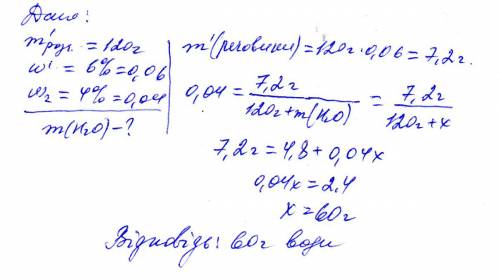 Дано:
m'розч. = 120г
w' = 6% = 0,06
w₂ = 4% = 0,04
m(H₂O) - ?
m'(речовини) = 120г · 0,06 = 7,2г.
0,04 = 7,2г / (120г + m(H₂O)) = 7,2г / (120г + x)
7,2г = 4,8 + 0,04x
0,04x = 2,4
x = 60г
Відповідь: 60г води